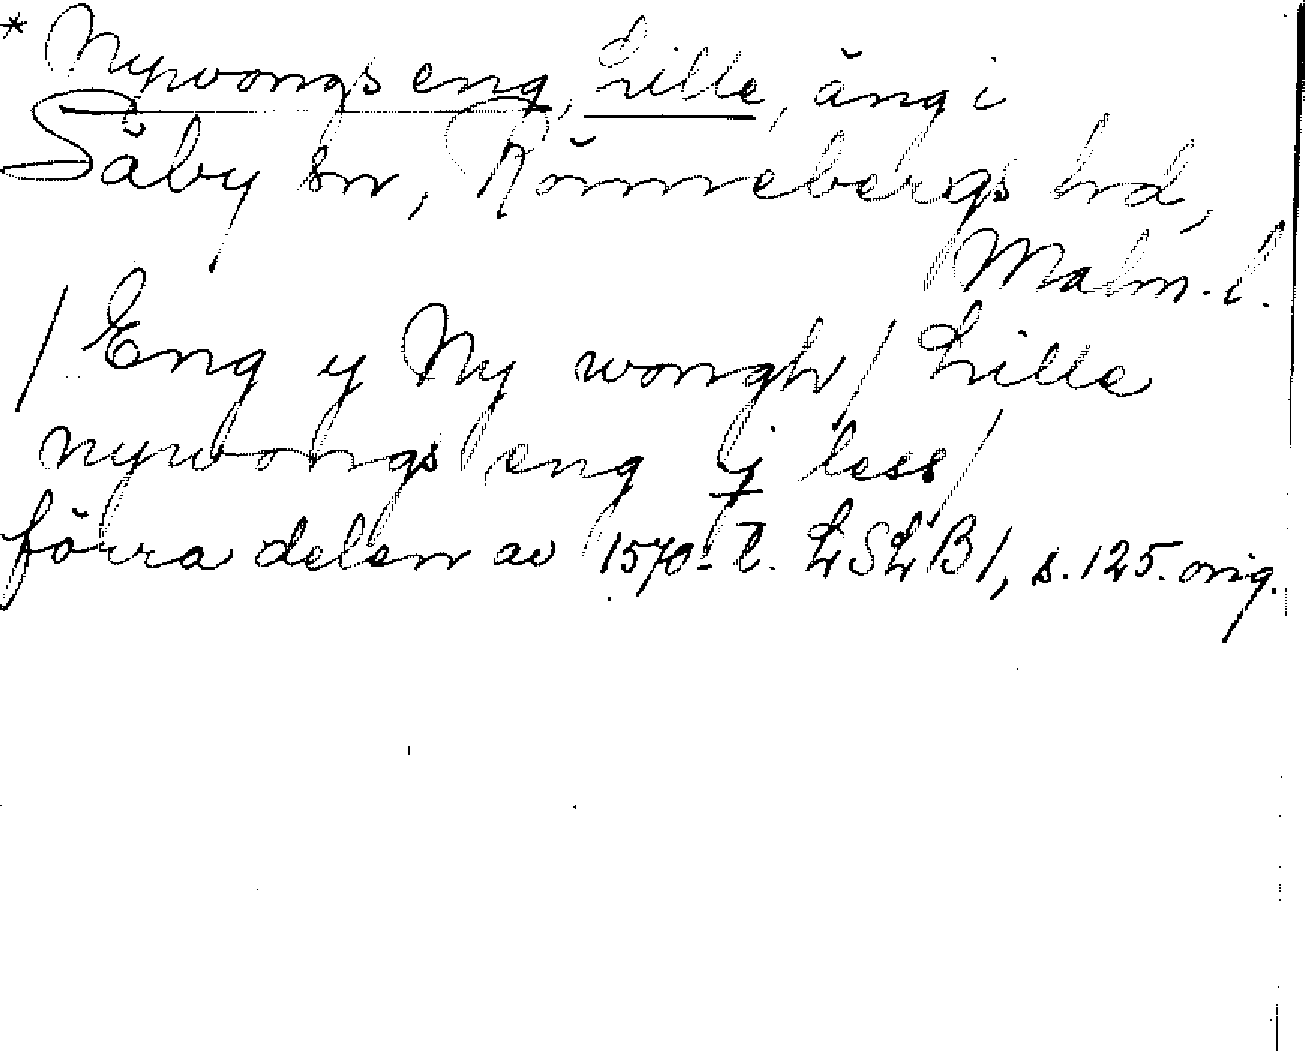 * Nywongs eng, Lille, äng i
Säby sn, Rönnebergs hd,
Malm. l.
/ Eng y Ny wongh / Lille
nywongs eng ij less /
förra delen av 1570-t. LSLB 1, s. 125. orig.